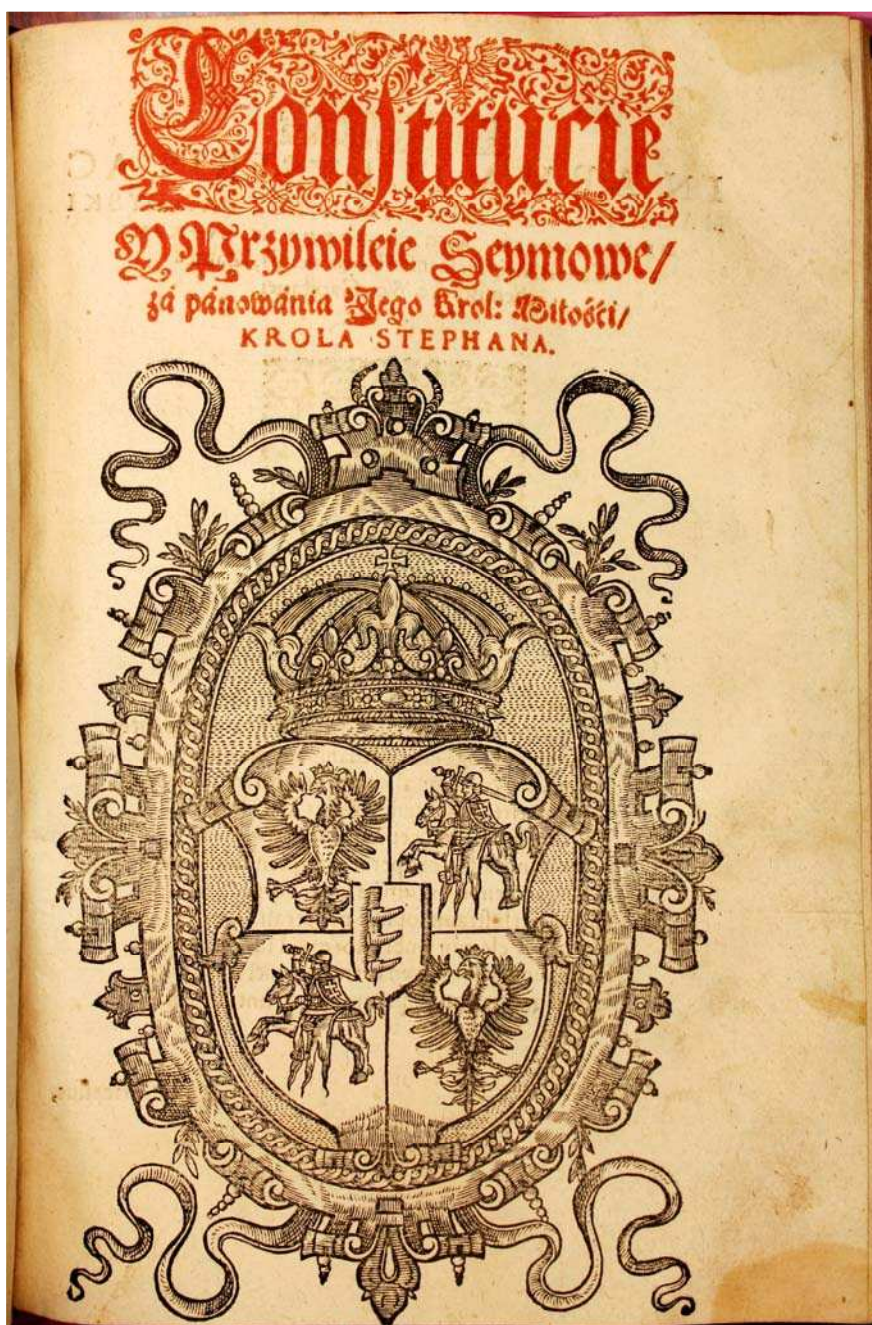 Constitucie
Y Przywileie Seymowe/
zá pánowánia Jego Krol: Miłośći/
KROLA STEPHANA.